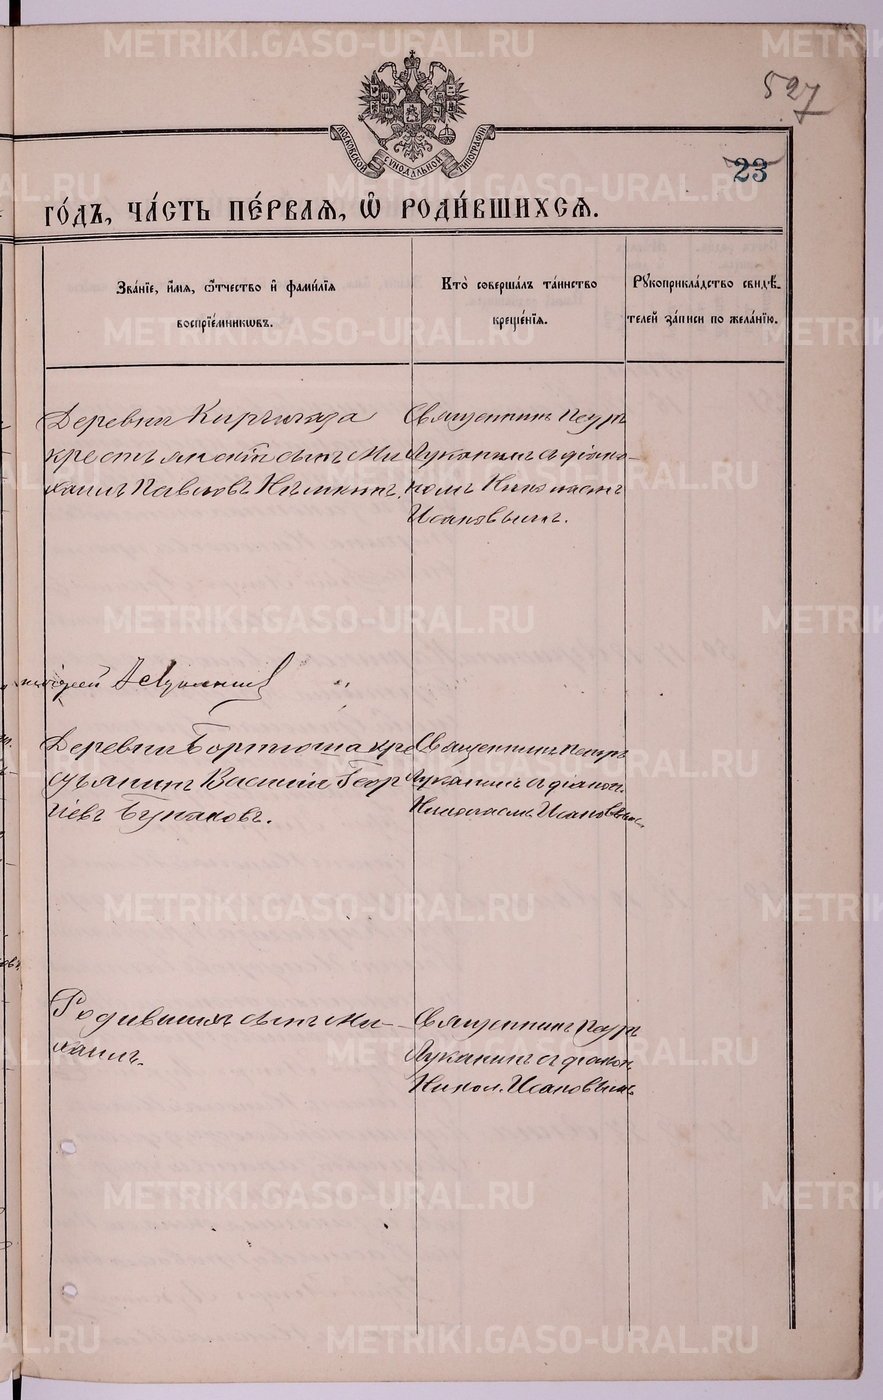 527
МОСКОВСКОЙ СУНОДАЛЬНОЙ ТИПОГРАФІИ
23
ГО́ДЪ, ЧА́СТЬ ПЕ́РВАЯ, Ѡ҆ РОДИ́ВШИХСЯ.
Зва́ніе, и҆́мя, ѻ҆́тчество и҆ фами́лїя
воспрїе́мникѡвъ.
Кто̀ соверша́лъ та́инство
креще́нїя.
Рꙋкоприкла́дство свидѣ́-
телей за́писи по жела́нїю.
Деревни
крестьянскій сынъ Ми
хаилъ Павловъ
Священникъ Петръ
Луканинъ съ діако-
номъ Николаемъ
Исаковымъ.
Деревни Бортноша кре
стьянинъ Василій Геор
гіевъ Бунаковъ.
Священникъ Петръ
Луканинъ съ діакон.
Николаемъ Исаковымъ.
сынъ Ми-
хаилъ.
Священникъ Петръ
Луканинъ съ діакон
Никол. Исаковымъ
METRIKI.GASO-URAL.RU